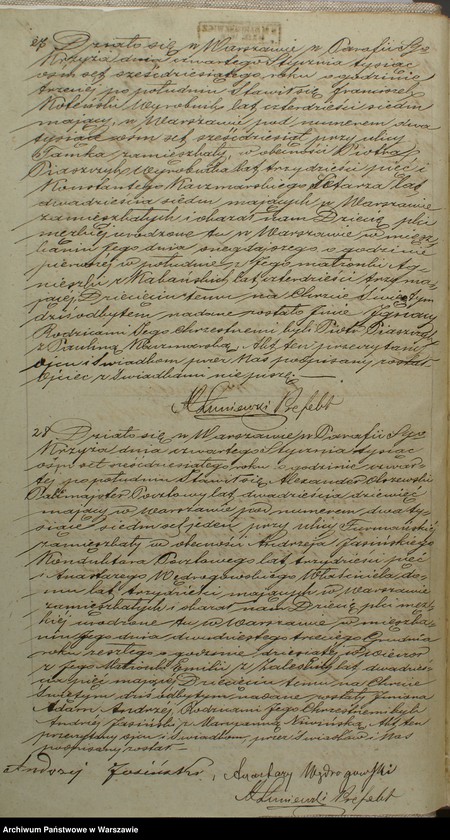 27 Działo się w Warszawie w Parafii Sgo
Krzyża dnia czwartego Stycznia tysiąc
ośm set sześćdziesiątego roku o godzinie
trzeciej po południu Stawił się Franciszek
Wyrobnik lat czterdzieści siedm
mający, w Warszawie pod numerem dwa
tysiące ośm set sześdziesiąt przy ulicy
Tamka zamieszkały, w obecności Piotra
Wyrobnika lat trzydzieści pięć i
Konstantego Kaczmarskiego lat
dwadzieścia siedm mających w Warszawie
zamieszkałych i okazał nam Dziecię płci
urodzone tu w Warszawie w miesz-
kaniu Jego dnia o godzinie
pierwszej w południe z Jego małżonki Ag-
nieszki z lat czterdzieści trzy ma-
jącej. Dziecięciu temu na Chrzcie Świętym
dziś odbytym nadane zostało Imie
Rodzicami Jego Chrzestnemi byli Piotr
z Pauliną Kaczmarską. Akt ten przeczytany
Ojcu i Świadkom przez Nas podpisany został.
Ojciec i Świadkowie nie piszą.
28. Działo się w Warszawie w Parafii Sgo
Krzyża dnia czwartego Stycznia tysiąc
ośm set sześdziesiątego roku o godzinie czwar-
tej po południu Stawił się Alexander
Pocztowy lat dwadzieścia dziewięć
mający w Warszawie pod numerem dwa ty-
siące siedm set jeden przy ulicy Furmańskiej
zamieszkały w obecności Andrzeja Jasińskiego
Konduktora Pocztowego lat trzydzieści pięć
i Anastazego Wędrogowskiego Właściciela do-
mu lat trzydzieści mających w Warszawie
zamieszkałych i okazał nam Dziecię płci męz-
kiej urodzone tu w Warszawie w mieszka-
niu Jego dnia dwudziestego trzeciego Grudnia
roku zeszłego o godzinie dziesiątej wieczor
z Jego Małżonki Emilii z lat dwadzie-
ścia pięć mającej Dziecięciu temu na Chrzcie
Świętym dziś odbytym nadane zostały Imiona
Adam Andrzej, Rodzicami Jego Chrzestnemi byli
Andrzej Jasiński z Maryanną Akt ten
przeczytany ojcu i Świadkom, przez Świadków i Nas
podpisany został.—
Andrzej Jasiński, Anastazy Wędrogowski
Archiwum Państwowe w Warszawie